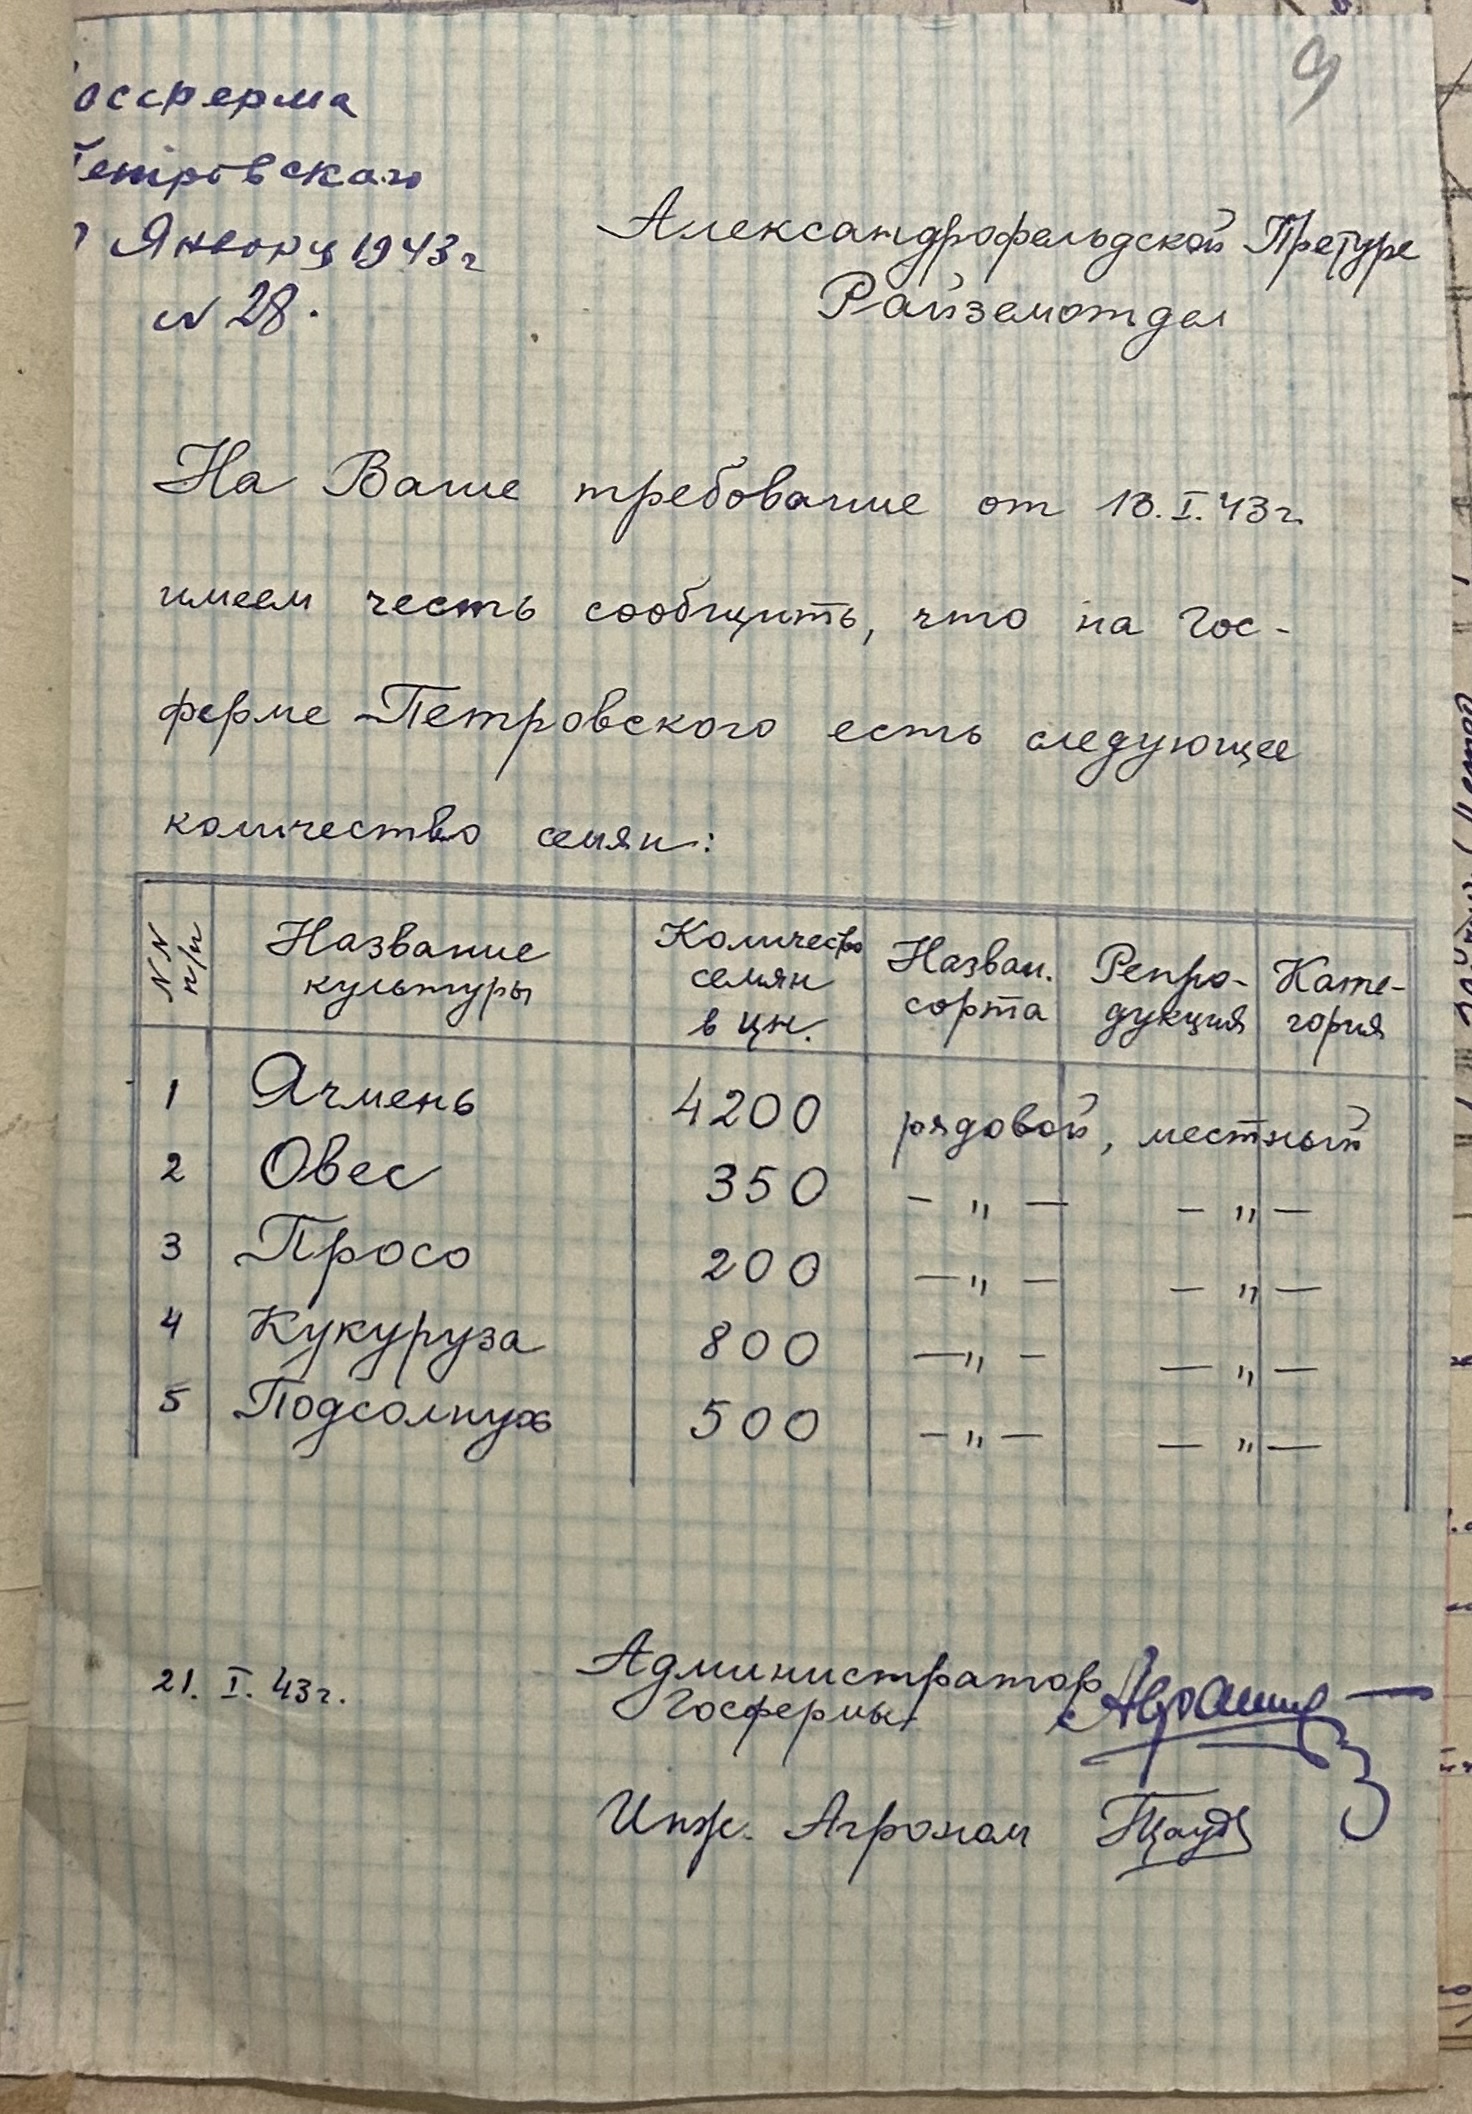 9
осферма
Петровского
Января 1943 г
N 28.
Александрофельдской Претуре
Райземотдел
На Ваше требование от 13.I.43 г.
имеем честь сообщить, что на Гос-
ферме Петровского есть следующее
количество семян:
NN п/п | Название культуры | Количество семян в цн. | Назван. сорта | Репро-дукция | Кате-гория
1 Ячмень 4200 рядовой, местный
2 Овес 350 — „ — — „ —
3 Просо 200 — „ — — „ —
4 Кукуруза 800 — „ — — „ —
5 Подсолнух 500 — „ — — „ —
21. I. 43 г.
Администратор
Госфермы
Инж. Агроном